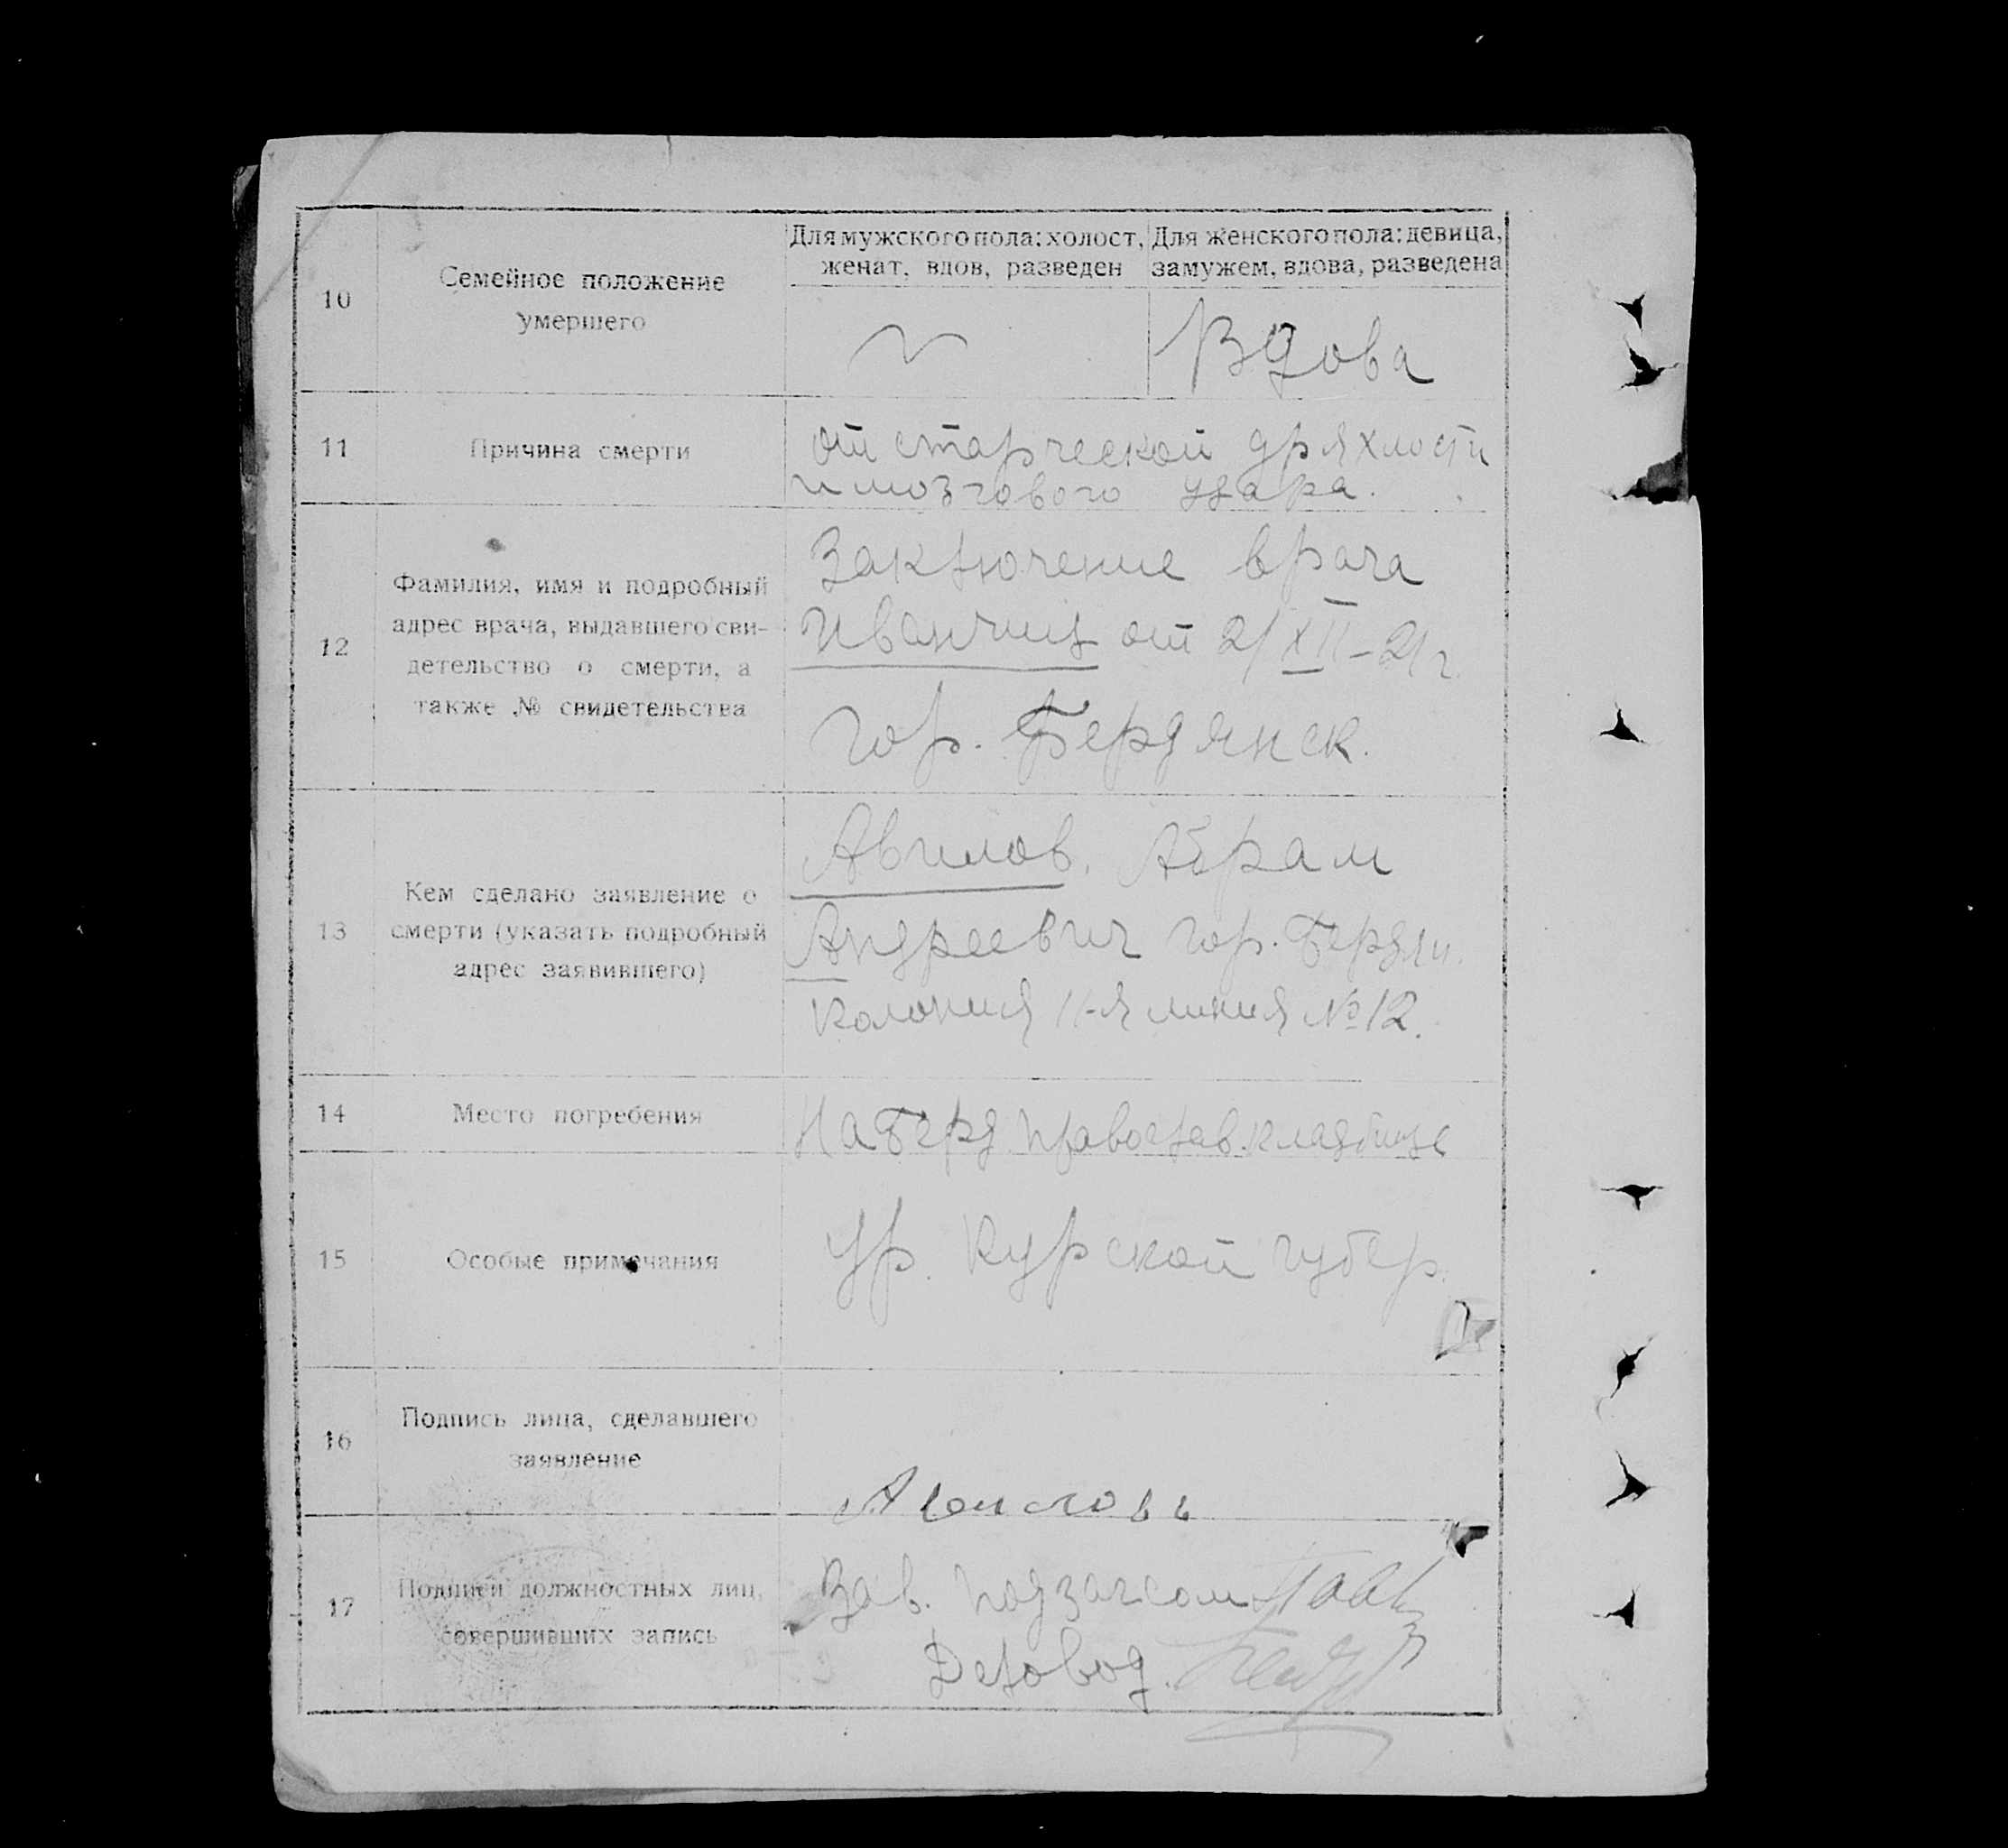 Для мужского пола: холост,
женат, вдов, разведен
Для женского пола: девица,
замужем, вдова, разведена
10
Семейное положение
умершего
Вдова
11
Причина смерти
от старческой дряхлости
и мозгового удара.
12
Фамилия, имя и подробный
адрес врача, выдавшего сви-
детельство о смерти, а
также № свидетельства
Заключение врача
от 2/XII-21 г.
гор. Бердянск.
13
Кем сделано заявление о
смерти (указать подробный
адрес заявившего)
Авилов, Абрам
Андреевич гор. Бердян.
колония 11-я линия № 12.
14
Место погребения
На Берд. православ. кладбище
15
Особые примечания
Ур. Курской губер.
16
Подпись лица, сделавшего
заявление
Авиловъ
17
Подписи должностных лиц,
совершивших запись
Зав. подзагсом
Деловод.